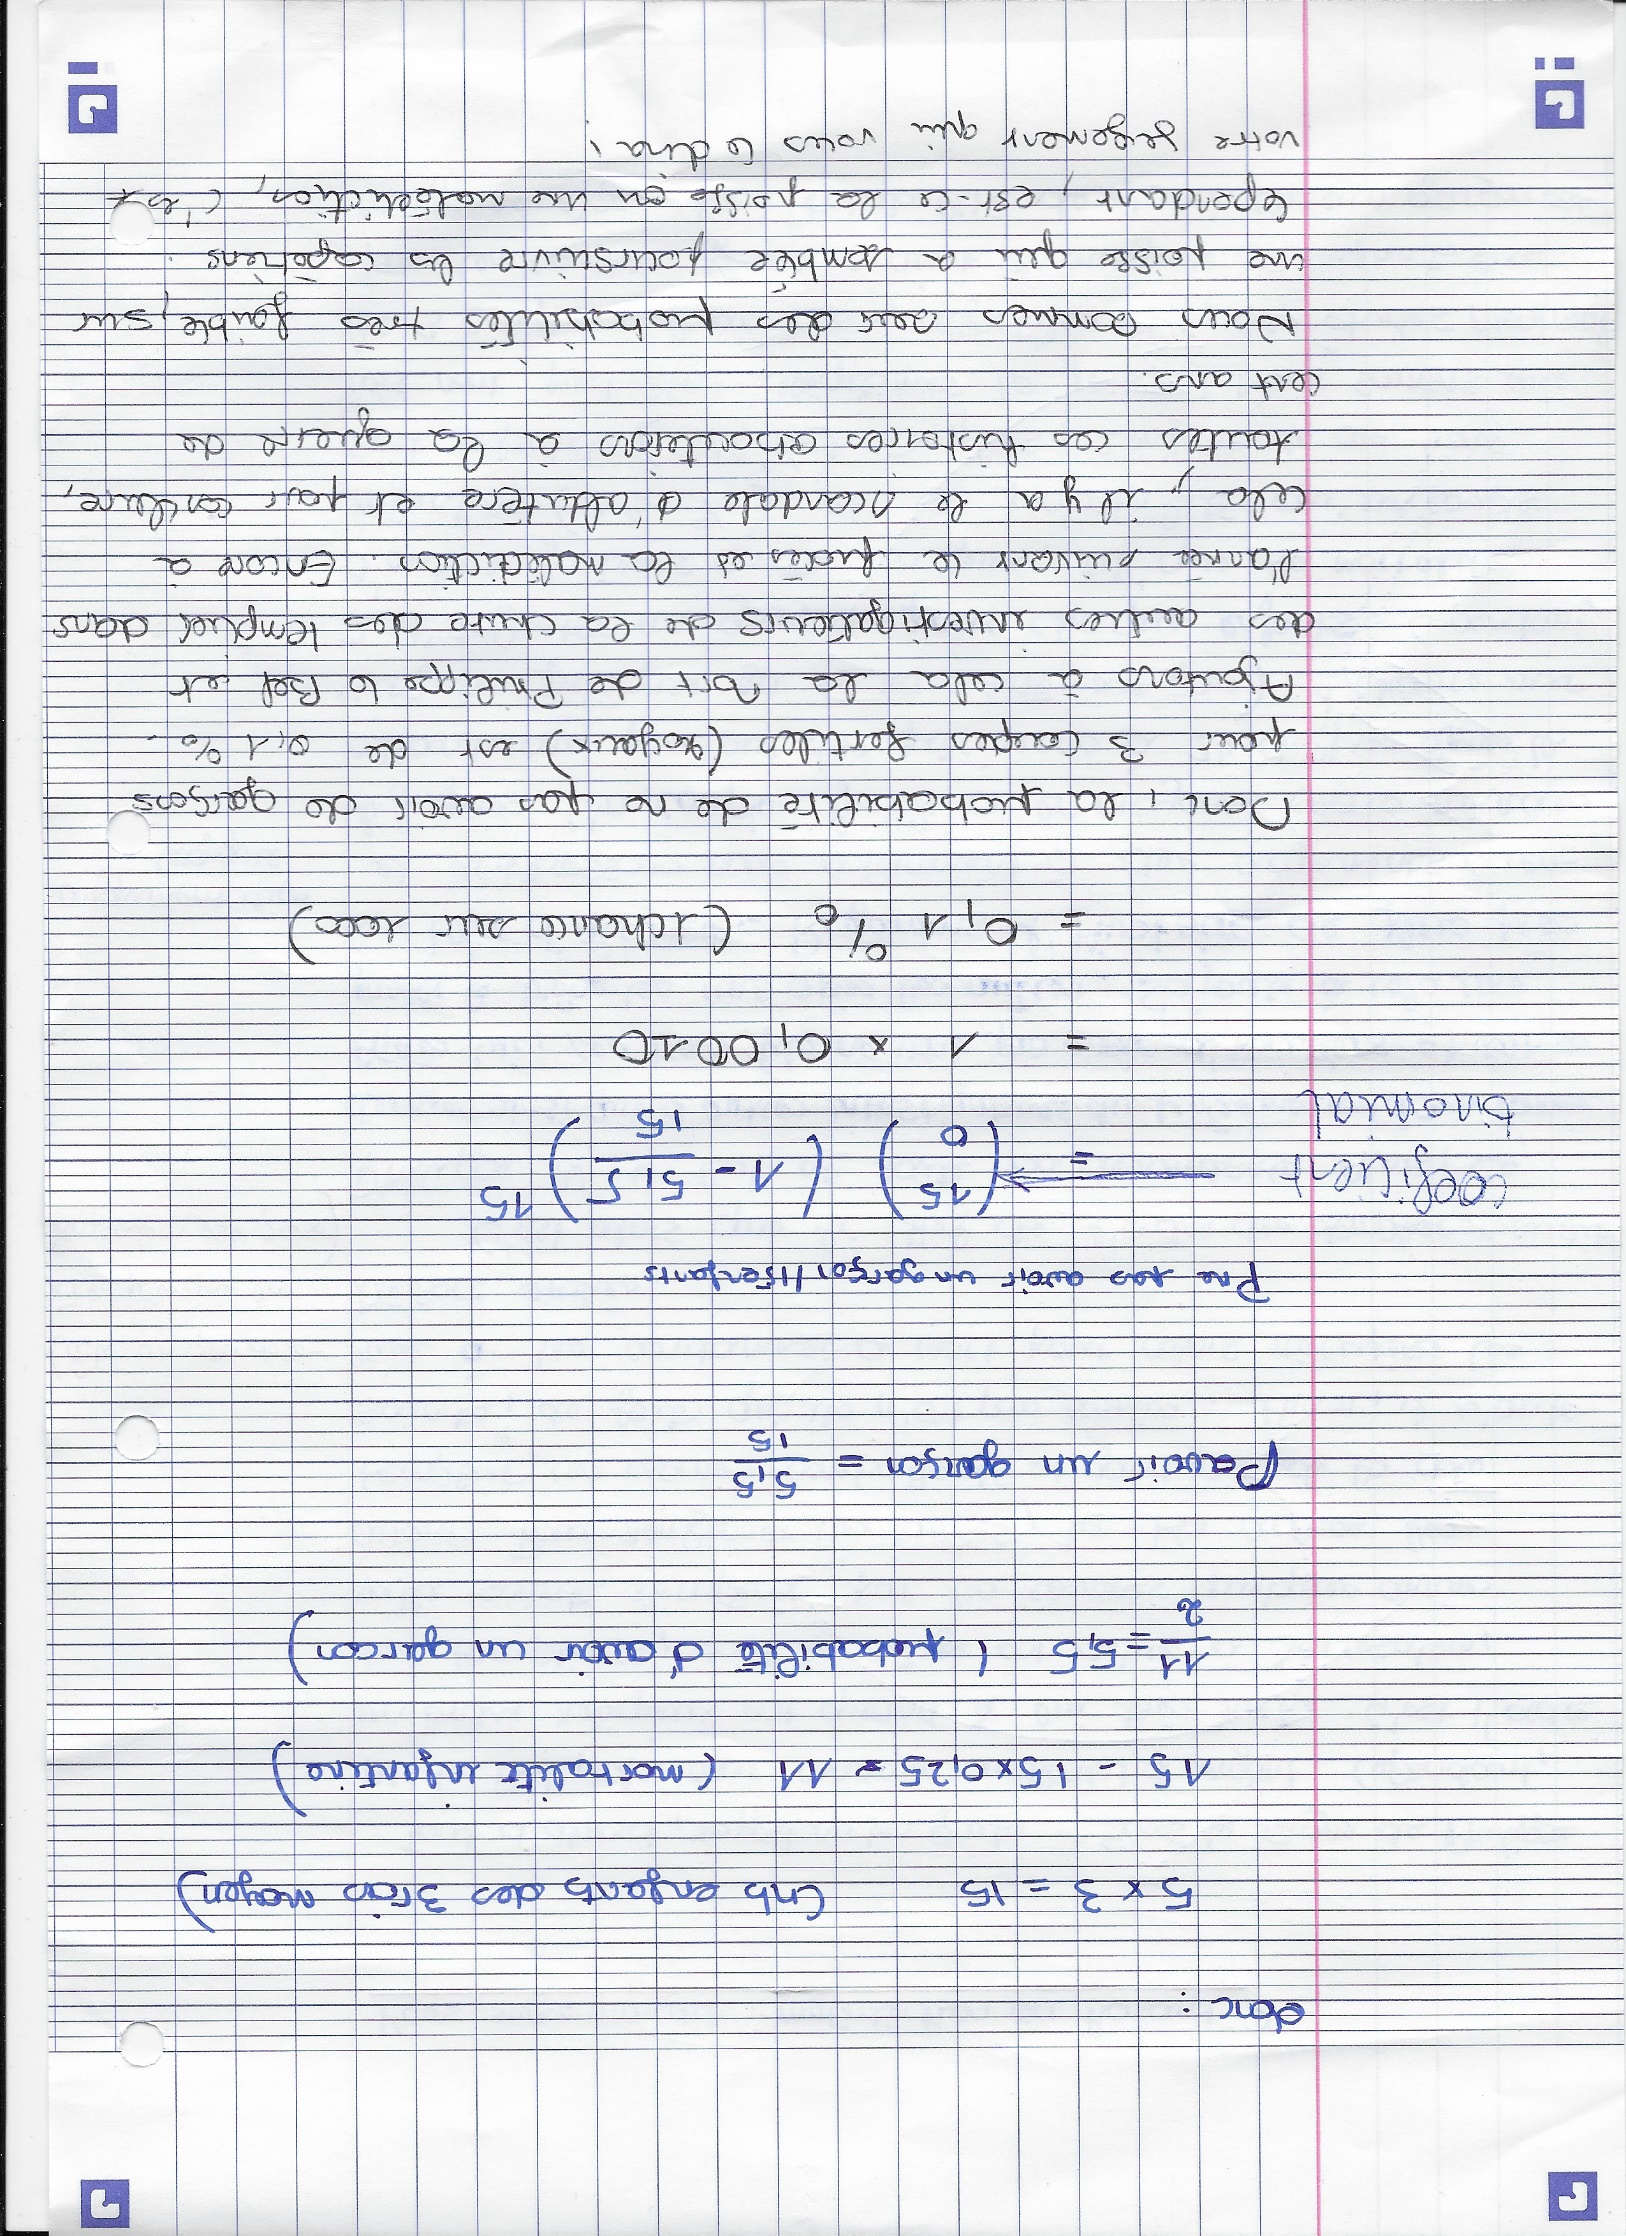 donc :
5 x 3 = 15 (nb enfants des 3 rois moyen)
15 - 15x0,25 = 11 (mortalité infantine)
11/2 = 5,5 (probabilité d'avoir un garcon)
Pavoir un garçon = 5,5/15
Pne pas avoir un garçon/15enfants
coeficient binomial → = (15 0) (1 - 5,5/15)^15
= 1 x 0,0010
= 0,1 % (1chance sur 1000)
Donc, la probabilité de ne pas avoir de garçons
pour 3 couples fertiles (royaux) est de 0,1 %.
Ajoutons à cela la mort de Philippe le Bel et
des autres investigateurs de la chute des templier dans
l'année suivant le procès et la malédiction. Encore à
cela, il y a le scandale d'adultère et pour conclure,
toutes ces histoires aboutiras à la guerre de
cent ans.
Nous sommes sur des probabilités très faible, sur
une poisse qui a semblée poursuivre les capétiens.
Cependant, est-ce la poisse ou une malédiction, c'est
votre jugement qui vous le dira !